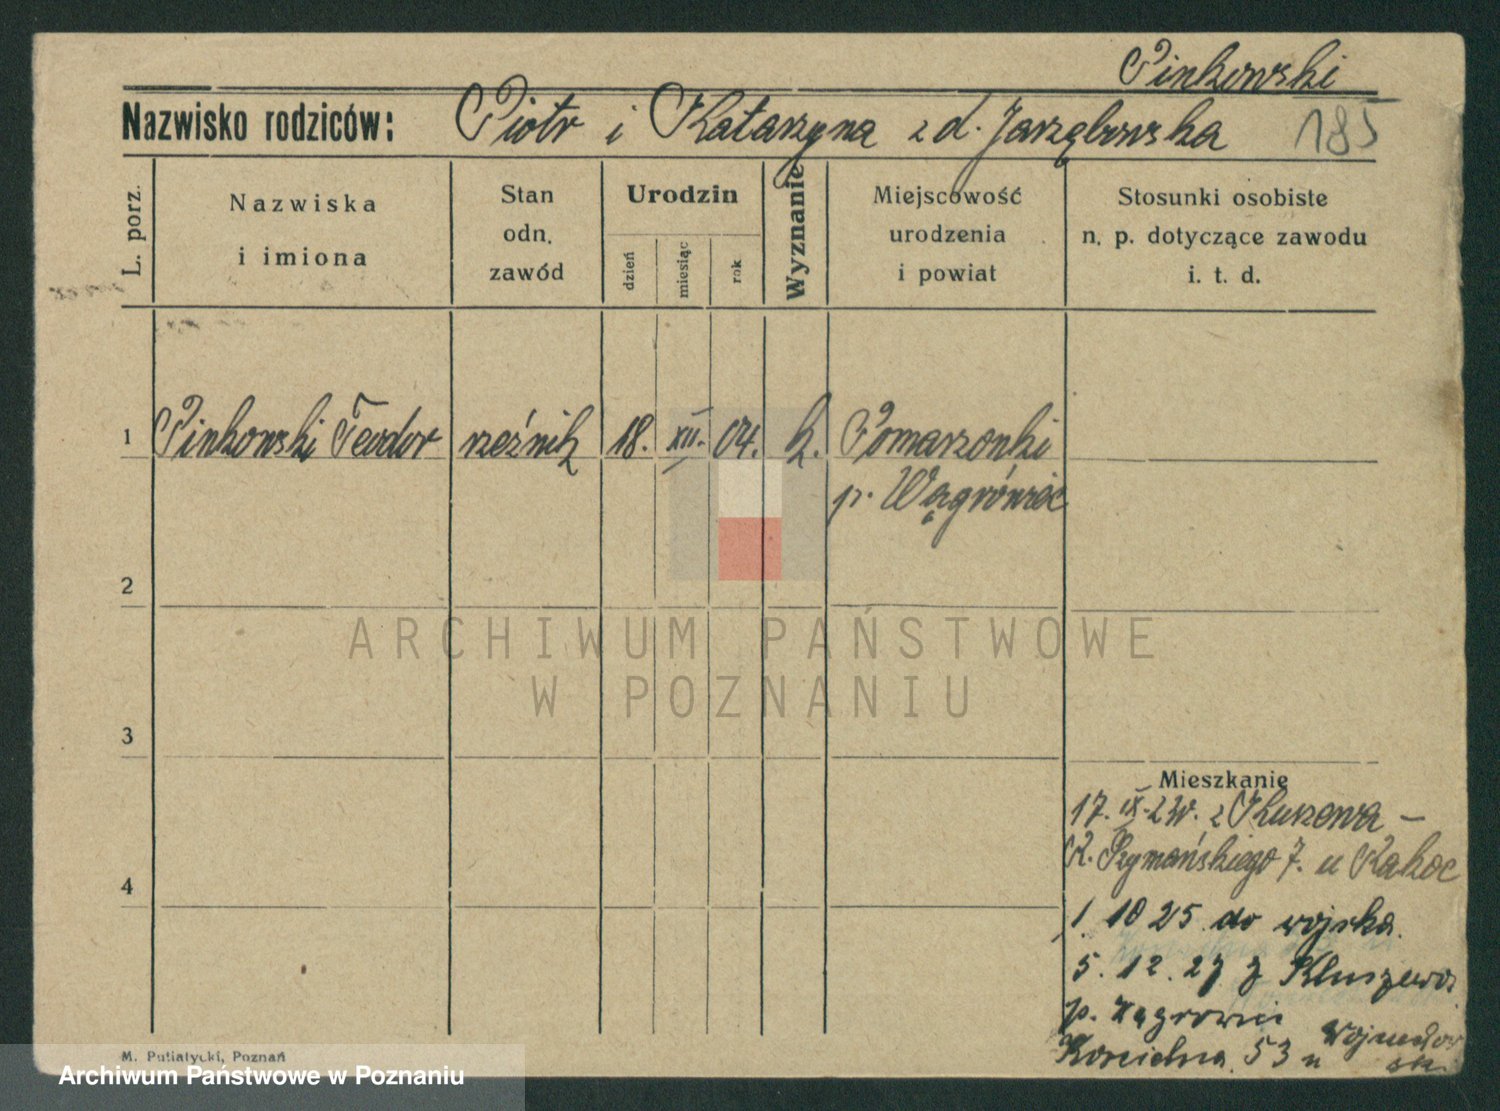 Pinkowski
Nazwisko rodziców: Piotr i Katarzyna z d. Jarzębowska 185
L. porz.
Nazwiska
i imiona
Stan
odn.
zawód
Urodzin
dzień
miesiąc
rok
Wyznanie
Miejscowość
urodzenia
i powiat
Stosunki osobiste
n. p. dotyczące zawodu
i. t. d.
1 Pinkowski Teodor rzeźnik 18. XII. 04. k. Pomarzonki
p. Wągrówiec
2
ARCHIWUM PAŃSTWOWE
W POZNANIU
3
Mieszkanie
17. IX. 24. z
K. Szymańskiego 7. u
4
1 10 25 do wojska.
5. 12. 27 z Kluszewa
p.
Kościelna 53 u
M. Putiatycki, Poznań
Archiwum Państwowe w Poznaniu